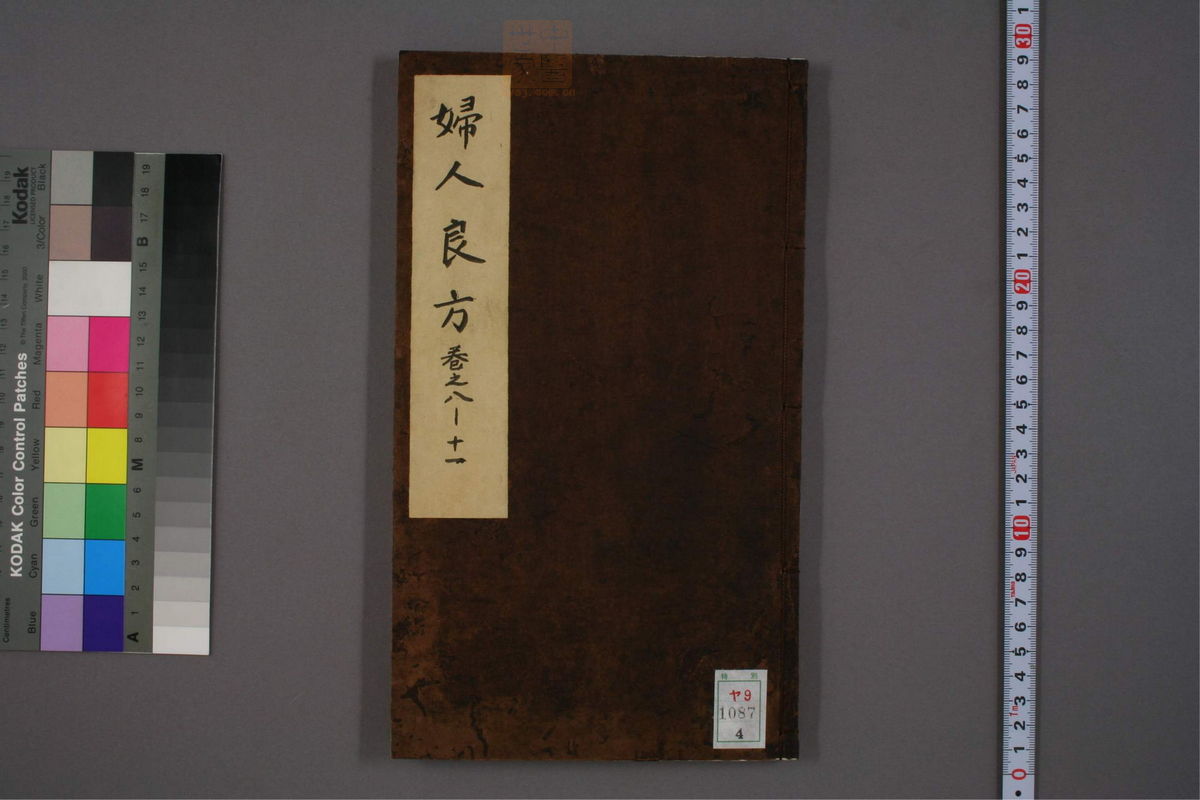 婦人良方 卷之八—十一
特 別
ヤ9
1087
4
Kodak
LICENSED PRODUCT
KODAK Color Control Patches
© The Tiffen Company, 2000
Centimetres
Blue
Cyan
Green
Yellow
Red
Magenta
White
3/Color
Black
A 1 2 3 4 5 6 M 8 9 10 11 12 13 14 15 B 17 18 19
0 1 2 3 4 5 6 7 8 9 10 1 2 3 4 5 6 7 8 9 20 1 2 3 4 5 6 7 8 9 30 1
1m